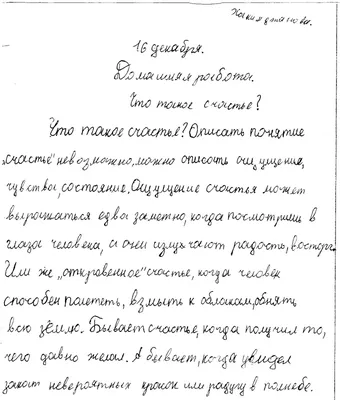 Хакимджанова.
16 декабря.
Домашняя работа.
Что такое счастье?
Что такое счастье? Описать понятие
„счастье" невозможно, можно описать ощущение,
чувства, состояние. Ощущение счастья может
выражаться едва заметно, когда посмотришь в
глаза человека, а они излучают радость, восторг.
Или же „откровенное" счастье, когда человек
способен полететь, взмыть к облакам, обнять
всю землю. Бывает счастье, когда получил то,
чего давно желал. А бывает, когда увидел
закат невероятных красок или радугу в полнебе.